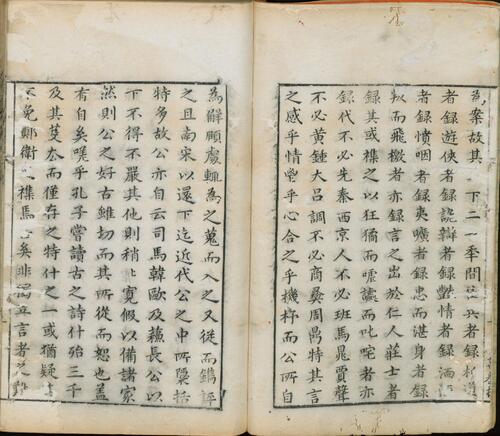 為案故其上下二一季間
者錄遊俠者錄詭辯者錄豔情者錄酒
者錄憤咽者錄夷曠者錄忠而湛身者錄
叛而飛檄者亦錄言之出於仁人莊士者
錄其或襍之以狂猾而嘑讟而叱咤者亦
錄代不必先秦西京人不必班馬晁賈聲
不必黃鍾大呂調不必商彝周鬲特其言
之感乎情當乎心合之乎機杼而公所自
為辭顧處輒為之蒐而入之又從而鐫評
之且南宋以還下迄近代公之中所檃括
特多故公亦自云司馬韓歐及蘇長公以
下不得不嚴其他則稍比寬假以備諸家
然則公之好古雖切而其所從而恕也蓋
有自矣嗟乎孔子嘗讀古之詩什殆三千
及其芟太而僅存之特什之一或猶疑
不免鄭衛之襍焉矣非獨立言者之難